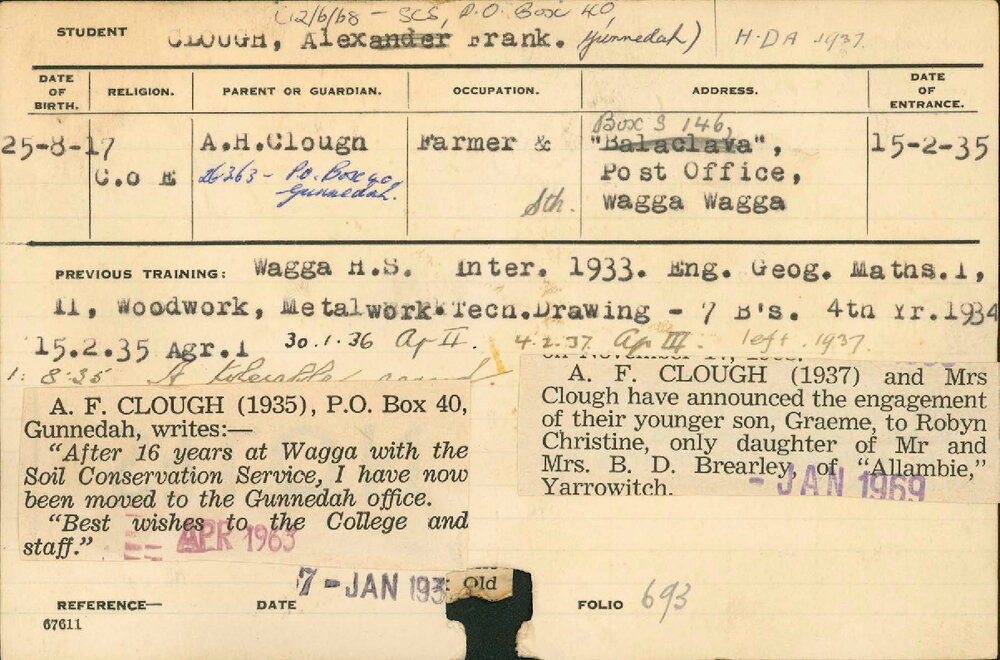 (12/6/68 - SCS, P.O. Box 40,
STUDENT CLOUGH, Alexander Frank. Gunnedah) H.D.A 1937.
DATE OF BIRTH. RELIGION. PARENT OR GUARDIAN. OCCUPATION. ADDRESS. DATE OF ENTRANCE.
Box 3 146,
25-8-17 A.H.Clough Farmer & "Balaclava", 15-2-35
C.o E P.O. Box 40 Post Office,
Gunnedah. Sth. Wagga Wagga
PREVIOUS TRAINING: Wagga H.S. Inter. 1933. Eng. Geog. Maths.I,
II, Woodwork, Metalwork.Tech.Drawing - 7 B's. 4th Yr.1934
15.2.35 Agr.I 30.1.36 Ag II. 4.2.37. Ag III. left 1937.
1.8.35 A tolerable
A. F. CLOUGH (1935), P.O. Box 40,
Gunnedah, writes:—
"After 16 years at Wagga with the
Soil Conservation Service, I have now
been moved to the Gunnedah office.
"Best wishes to the College and
staff."
APR 1963
A. F. CLOUGH (1937) and Mrs
Clough have announced the engagement
of their younger son, Graeme, to Robyn
Christine, only daughter of Mr and
Mrs. B. D. Brearley, of "Allambie,"
Yarrowitch.
- JAN 1969
7 - JAN 193
Old
REFERENCE— DATE FOLIO 693
67611